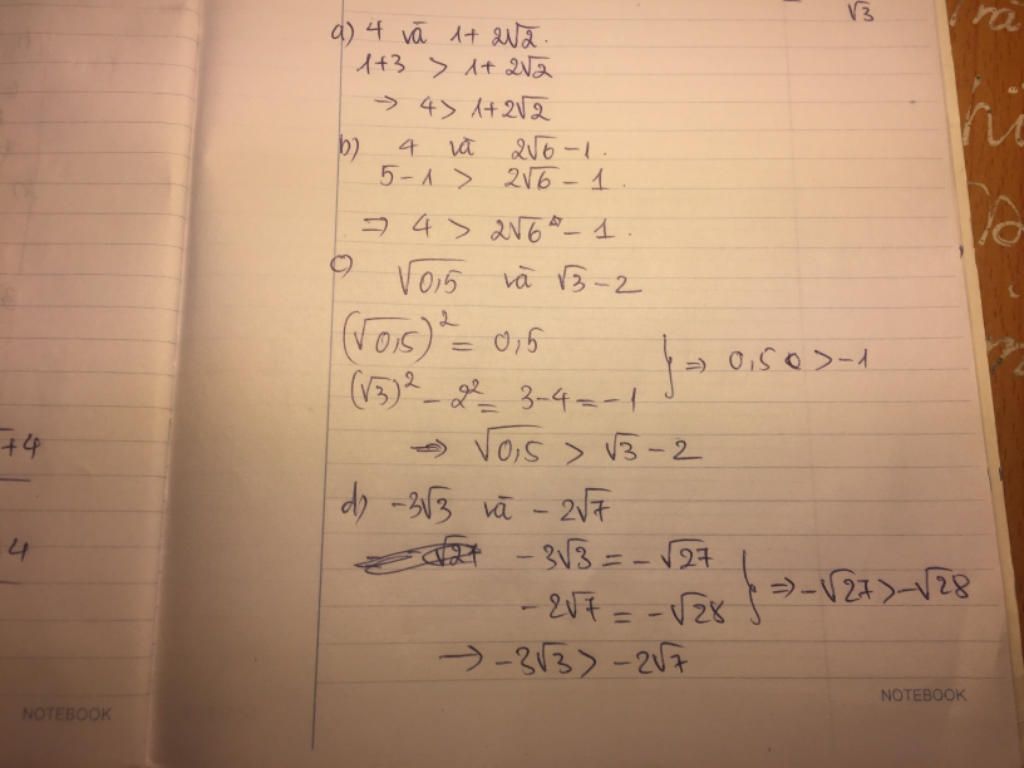 √3
a) 4 và 1 + 2√2.
1+3 > 1 + 2√2
→ 4 > 1 + 2√2
b) 4 và 2√6 - 1.
5 - 1 > 2√6 - 1.
⇒ 4 > 2√6 - 1.
c) √0,5 và √3 - 2
(√0,5)² = 0,5
(√3)² - 2² = 3 - 4 = -1 } ⇒ 0,5 > -1
⇒ √0,5 > √3 - 2
d) -3√3 và -2√7
√27 -3√3 = -√27
-2√7 = -√28 } ⇒ -√27 > -√28
→ -3√3 > -2√7
+4
4
NOTEBOOK
NOTEBOOK